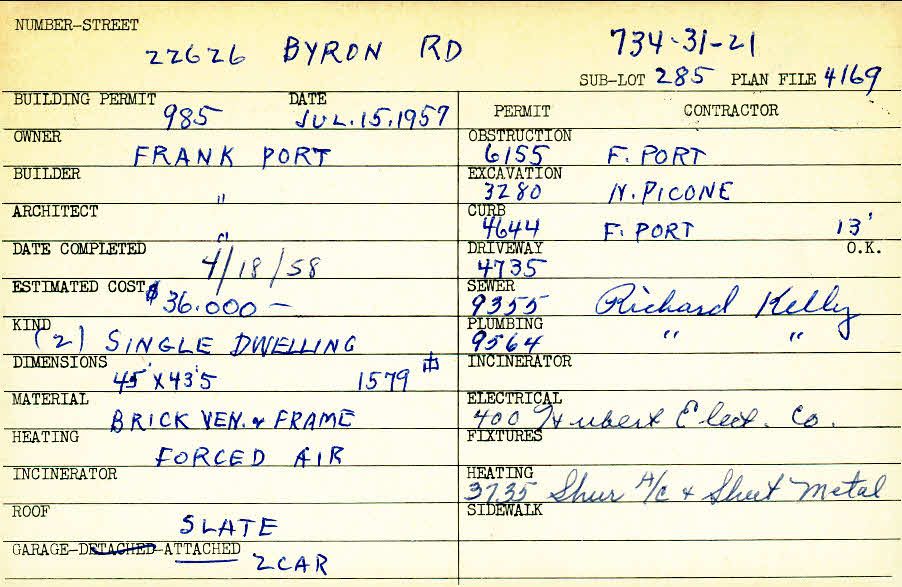 NUMBER-STREET
22626 BYRON RD 734-31-21
SUB-LOT 285 PLAN FILE 4169
BUILDING PERMIT DATE
985 JUL. 15, 1957
PERMIT CONTRACTOR
OWNER
FRANK PORT
OBSTRUCTION
6155 F. PORT
BUILDER
"
EXCAVATION
3280 N. PICONE
ARCHITECT
"
CURB
4644 F. PORT 13'
DATE COMPLETED
4/18/58
DRIVEWAY O.K.
4735
ESTIMATED COST $36.000 —
SEWER
9355 Richard Kelly
KIND
(2) SINGLE DWELLING
PLUMBING
9564 " "
DIMENSIONS
45' X 43'5 1579
INCINERATOR
MATERIAL
BRICK VEN. & FRAME
ELECTRICAL
400 Hubert Elect. Co.
HEATING
FORCED AIR
FIXTURES
INCINERATOR
HEATING
3735 Shur A/C & Sheet Metal
ROOF
SLATE
SIDEWALK
GARAGE-DETACHED-ATTACHED
2 CAR